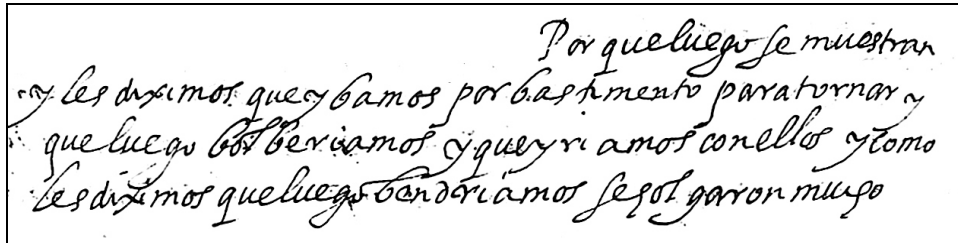 Por que luego se muestran
y les diximos que ybamos por bastimento para tornar y
que luego bolberiamos y que yriamos con ellos y como
les diximos que luego benderiamos se holgaron mucho